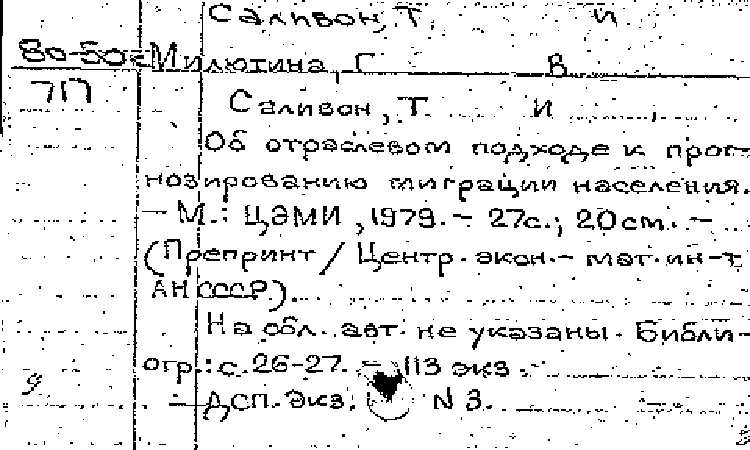 Саливон, Т. И
80-50
Милютина, Г В
7П
Саливон, Т. И
Об отраслевом подходе к прог-
нозированию миграции населения.
— М.: ЦЭМИ, 1979. — 27с.; 20см. —
(Препринт / Центр. экон.- мат. ин-т
АН СССР).
На обл. авт. не указаны. Библи-
огр.: с. 26-27. — 113 экз.
9
— ДСП. Экз. N 3.